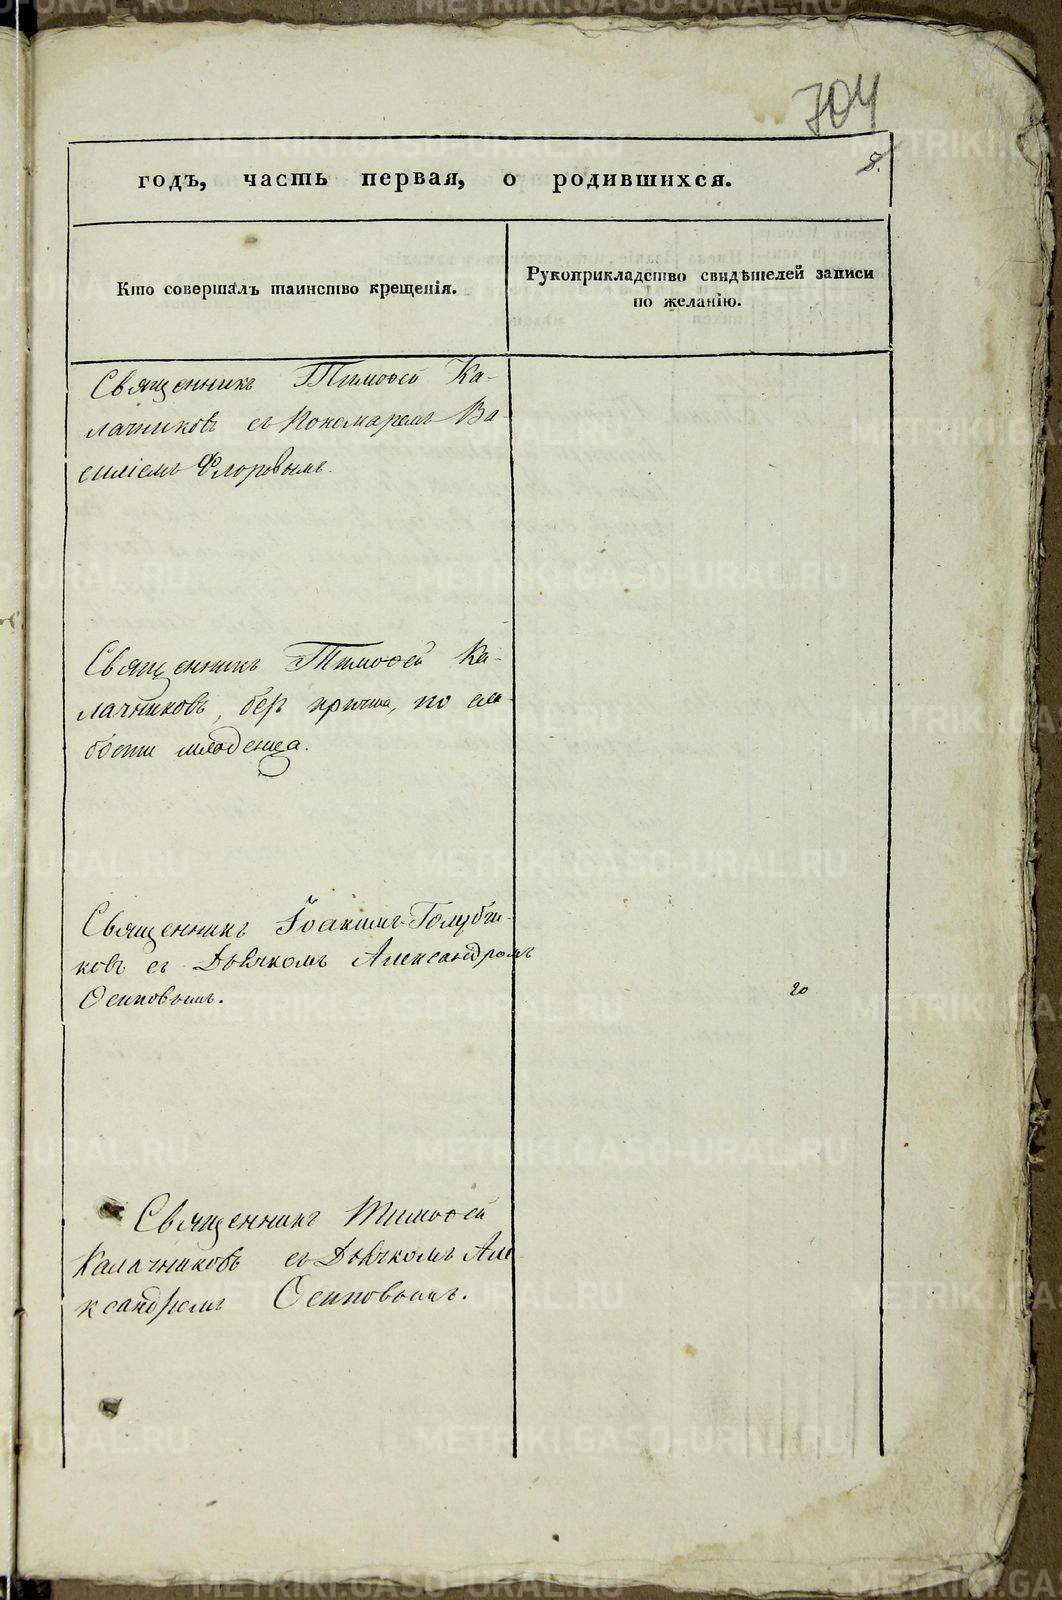 704
8.
годъ, часть первая, о родившихся.
Кто совершалъ таинство крещенія.
Рукоприкладство свидѣтелей записи
по желанію.
Священникъ Тимофей Ка-
лачниковъ съ Пономаремъ Ва-
силіемъ Флоровымъ.
Священникъ Тимофей Ка-
лачниковъ, безъ причта, по сла-
бости младенца.
Священникъ Іоакимъ Голубчи-
ковъ съ Дьячкомъ Александромъ
Осиповымъ.
20
Священникъ Тимофей
Калачниковъ съ Дьячкомъ Але
ксандромъ Осиповымъ.
METRIKI.GASO-URAL.RU